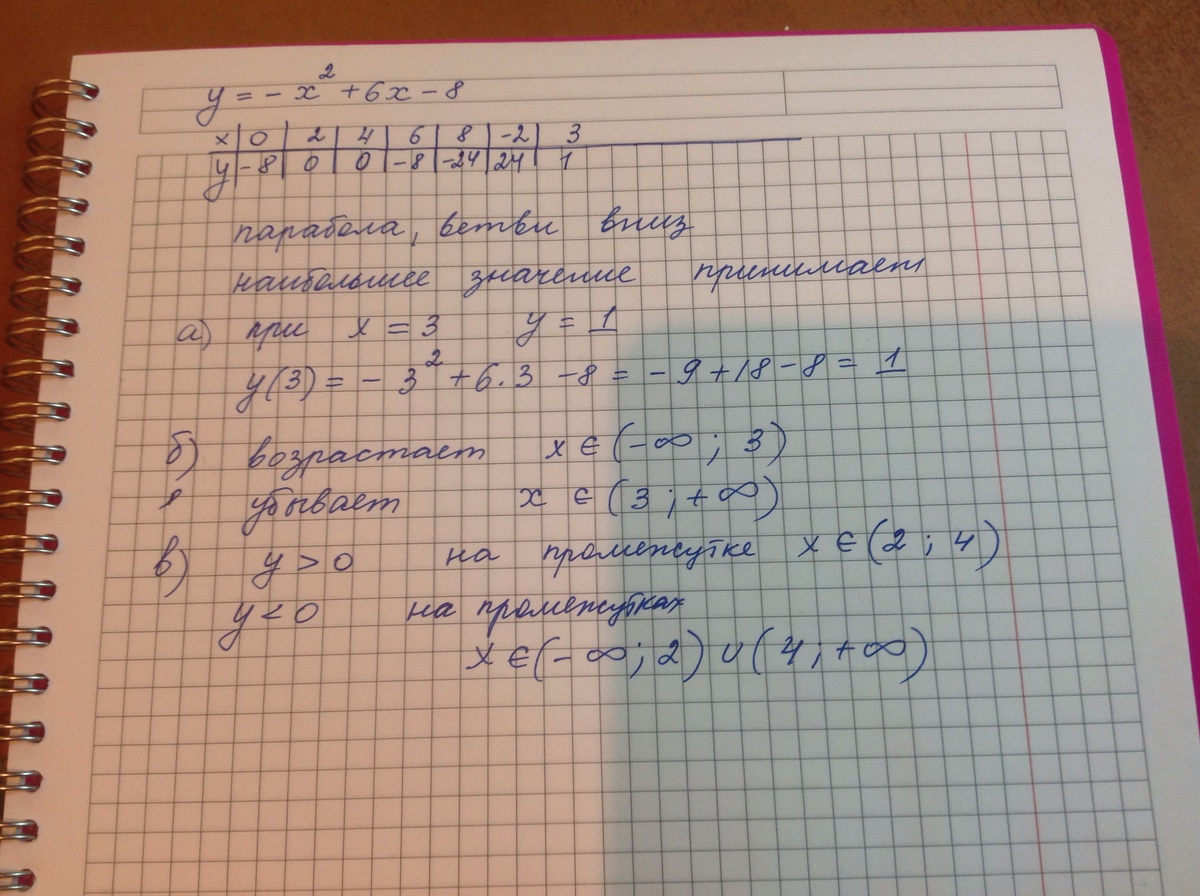 y = - x² + 6x - 8
x | 0 | 2 | 4 | 6 | 8 | -2 | 3
y | -8 | 0 | 0 | -8 | -24 | 24 | 1
парабола, ветви вниз
наибольшее значение принимает
а) при x = 3 y = 1
y(3) = - 3² + 6·3 - 8 = - 9 + 18 - 8 = 1
б) возрастает x ∈ (-∞ ; 3)
убывает x ∈ (3 ; +∞)
в) y > 0 на промежутке x ∈ (2 ; 4)
y < 0 на промежутках
x ∈ (- ∞ ; 2) ∪ (4 ; +∞)